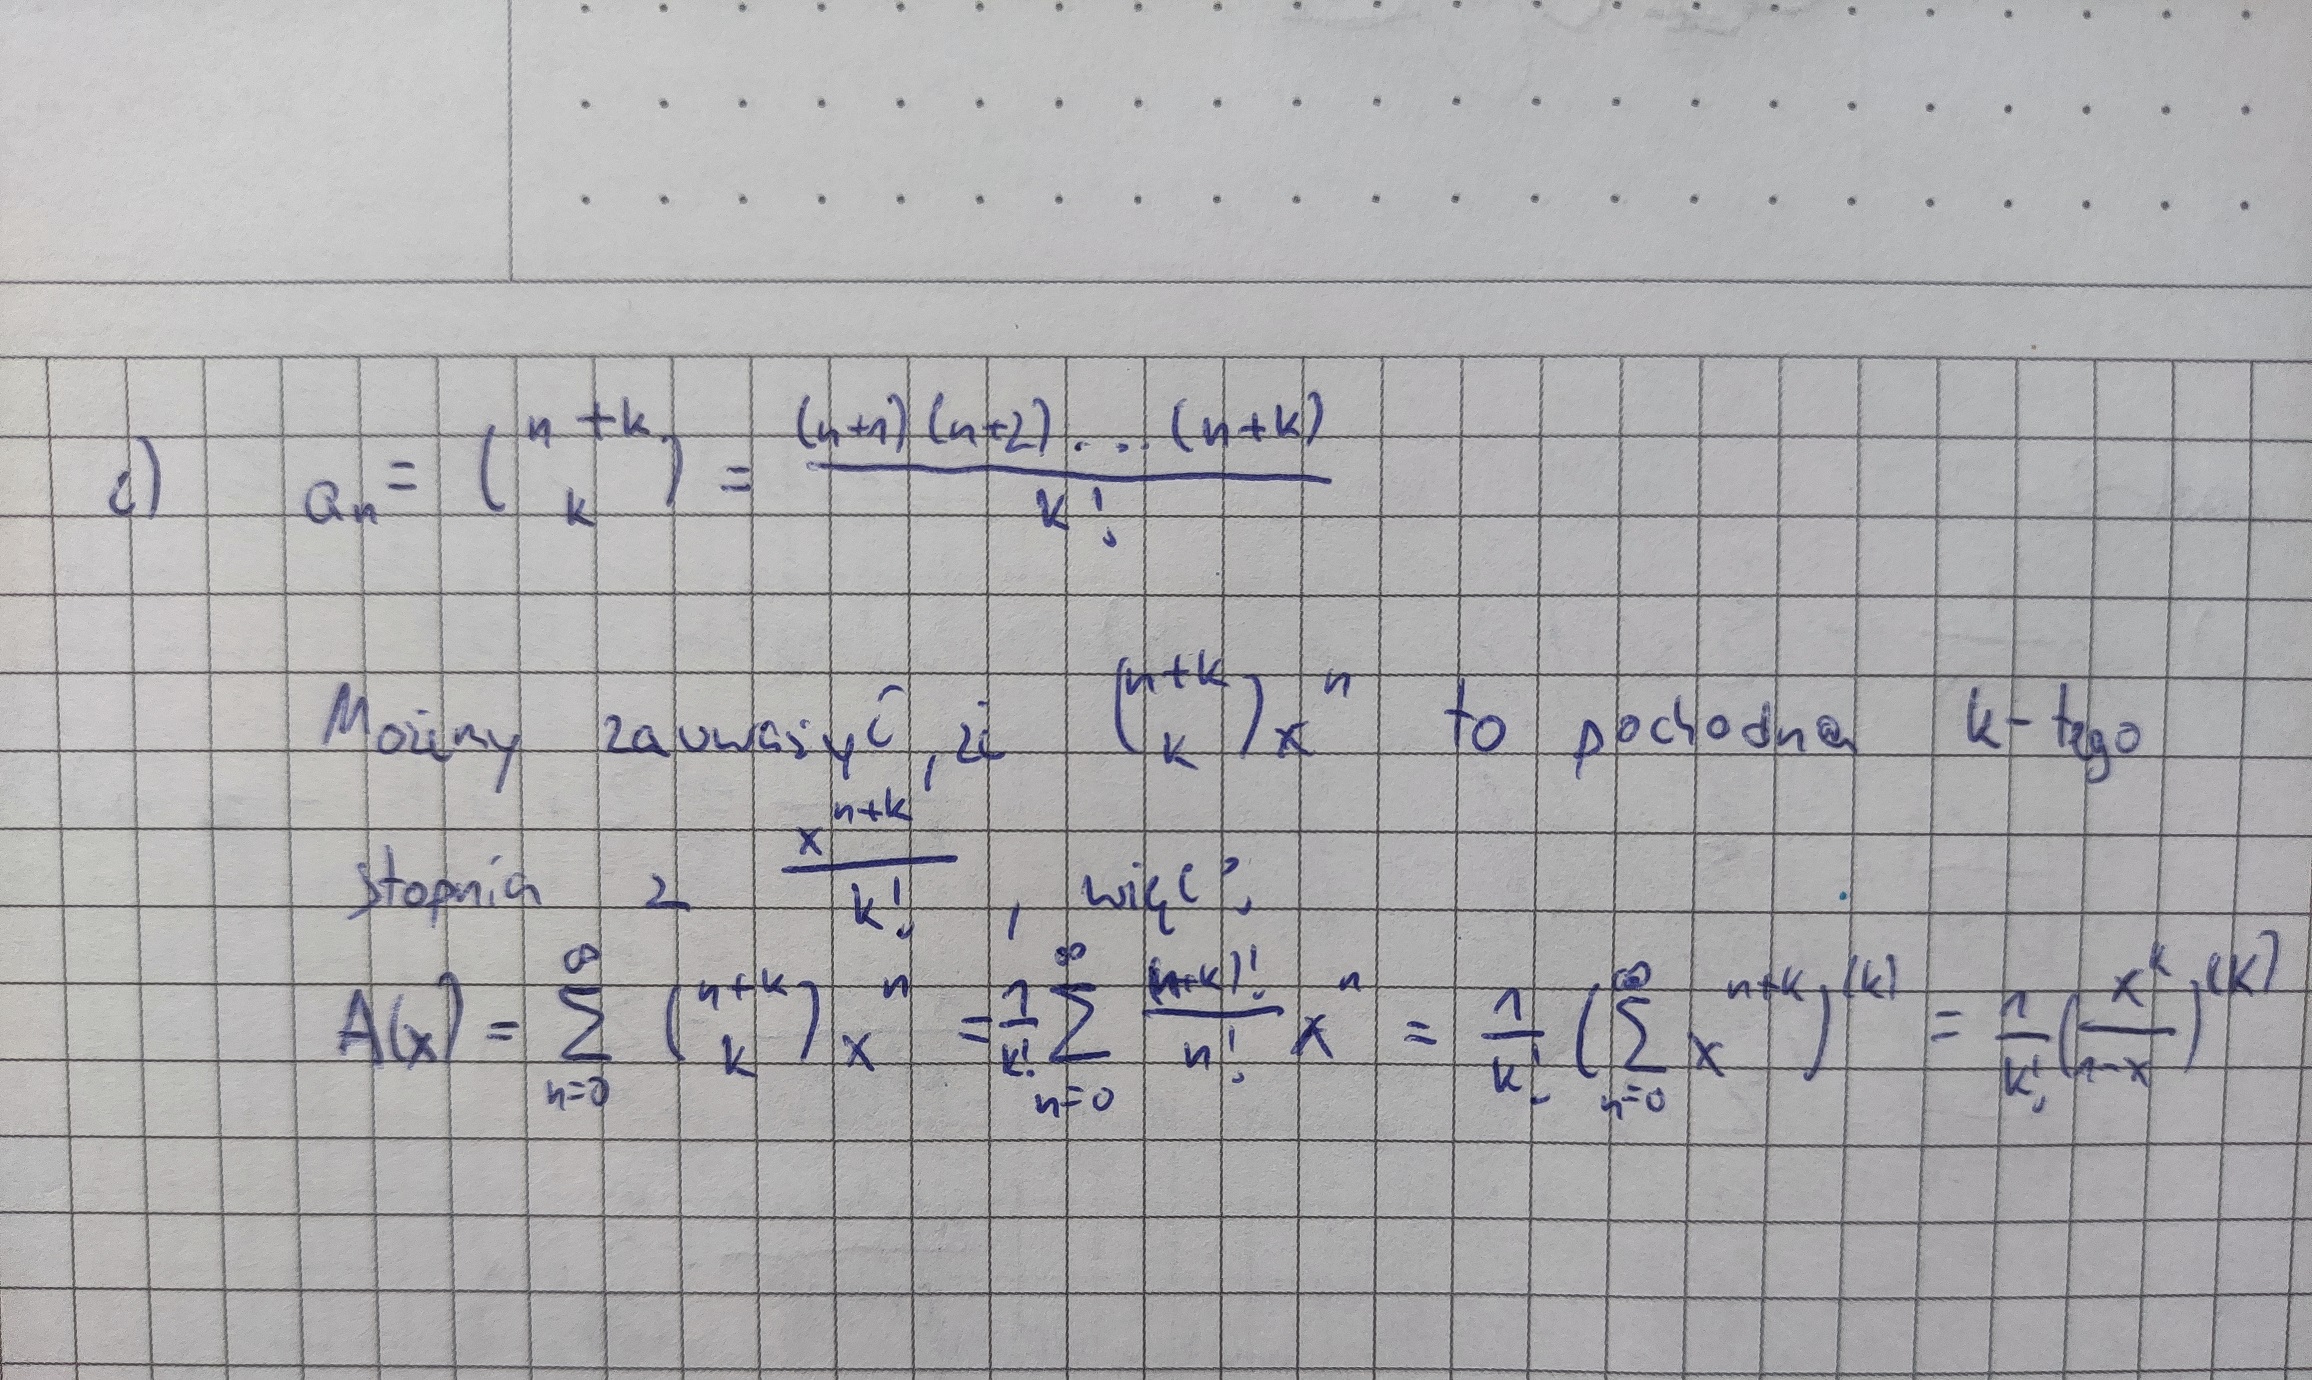 c) aₙ = (n+k k) = (n+1)(n+2)...(n+k) / k!
Możemy zauważyć, że (n+k k) xⁿ to pochodna k-tego
stopnia z x^(n+k) / k! , więc:
A(x) = ∑_{n=0}^{∞} (n+k k) xⁿ = 1/k! ∑_{n=0}^{∞} (n+k)!/n! xⁿ = 1/k! (∑_{n=0}^{∞} x^(n+k))^(k) = 1/k! (x^k / 1-x)^(k)